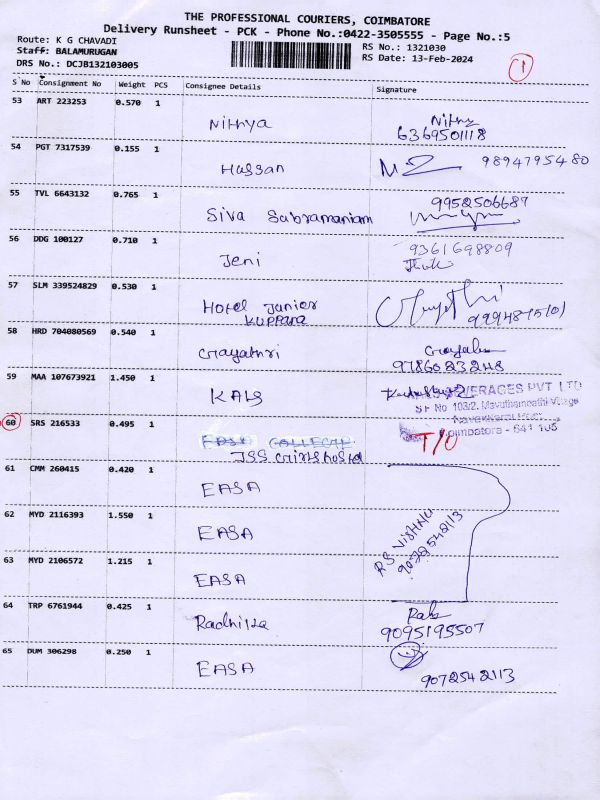 THE PROFESSIONAL COURIERS, COIMBATORE
Delivery Runsheet - PCK - Phone No.:0422-3505555 - Page No.:5
Route: K G CHAVADI
Staff: BALAMURUGAN
DRS No.: DCJB132103005
RS No.: 1321030
RS Date: 13-Feb-2024
1
S No Consignment No Weight PCS Consignee Details Signature
53 ART 223253 0.570 1
Nithya
6369501118
54 PGT 7317539 0.155 1
Hassan
9894795480
55 TVL 6643132 0.765 1
Siva Subramaniam
9952506687
56 DDG 100127 0.710 1
Jeni
9361698809
57 SLM 339524829 0.530 1
Hotel Junior
KUPPANA
58 HRD 704080569 0.540 1
Gayathri
9786023248
59 MAA 107673921 1.450 1
KALS
BEVERAGES PVT LTD
SF No 103/2, Mavuthampathi Village
Coimbatore - 641 105
60 SRS 216533 0.495 1
JSS Girls hostel
T/O
61 CMM 260415 0.420 1
EASA
62 MYD 2116393 1.550 1
EASA
RS VISHNU
9072542113
63 MYD 2106572 1.215 1
EASA
64 TRP 6761944 0.425 1
Radhika
9095195507
65 DUM 306298 0.250 1
EASA
9072542113